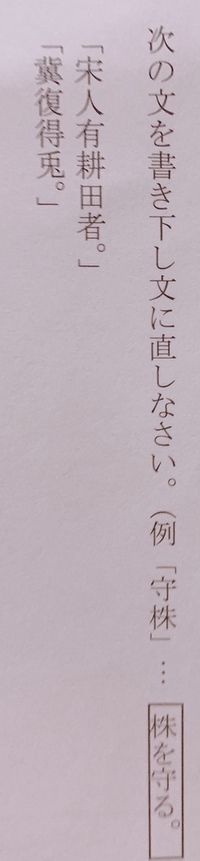 次の文を書き下し文に直しなさい。（例「守株」…株を守る。
「宋人有耕田者。」
「冀復得兎。」